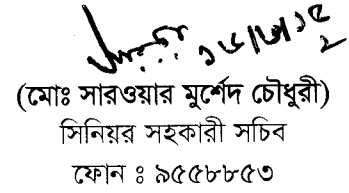 (মোঃ সারওয়ার মুর্শেদ চৌধুরী)
সিনিয়র সহকারী সচিব
ফোন ঃ ৯৫৫৮৮৫৩